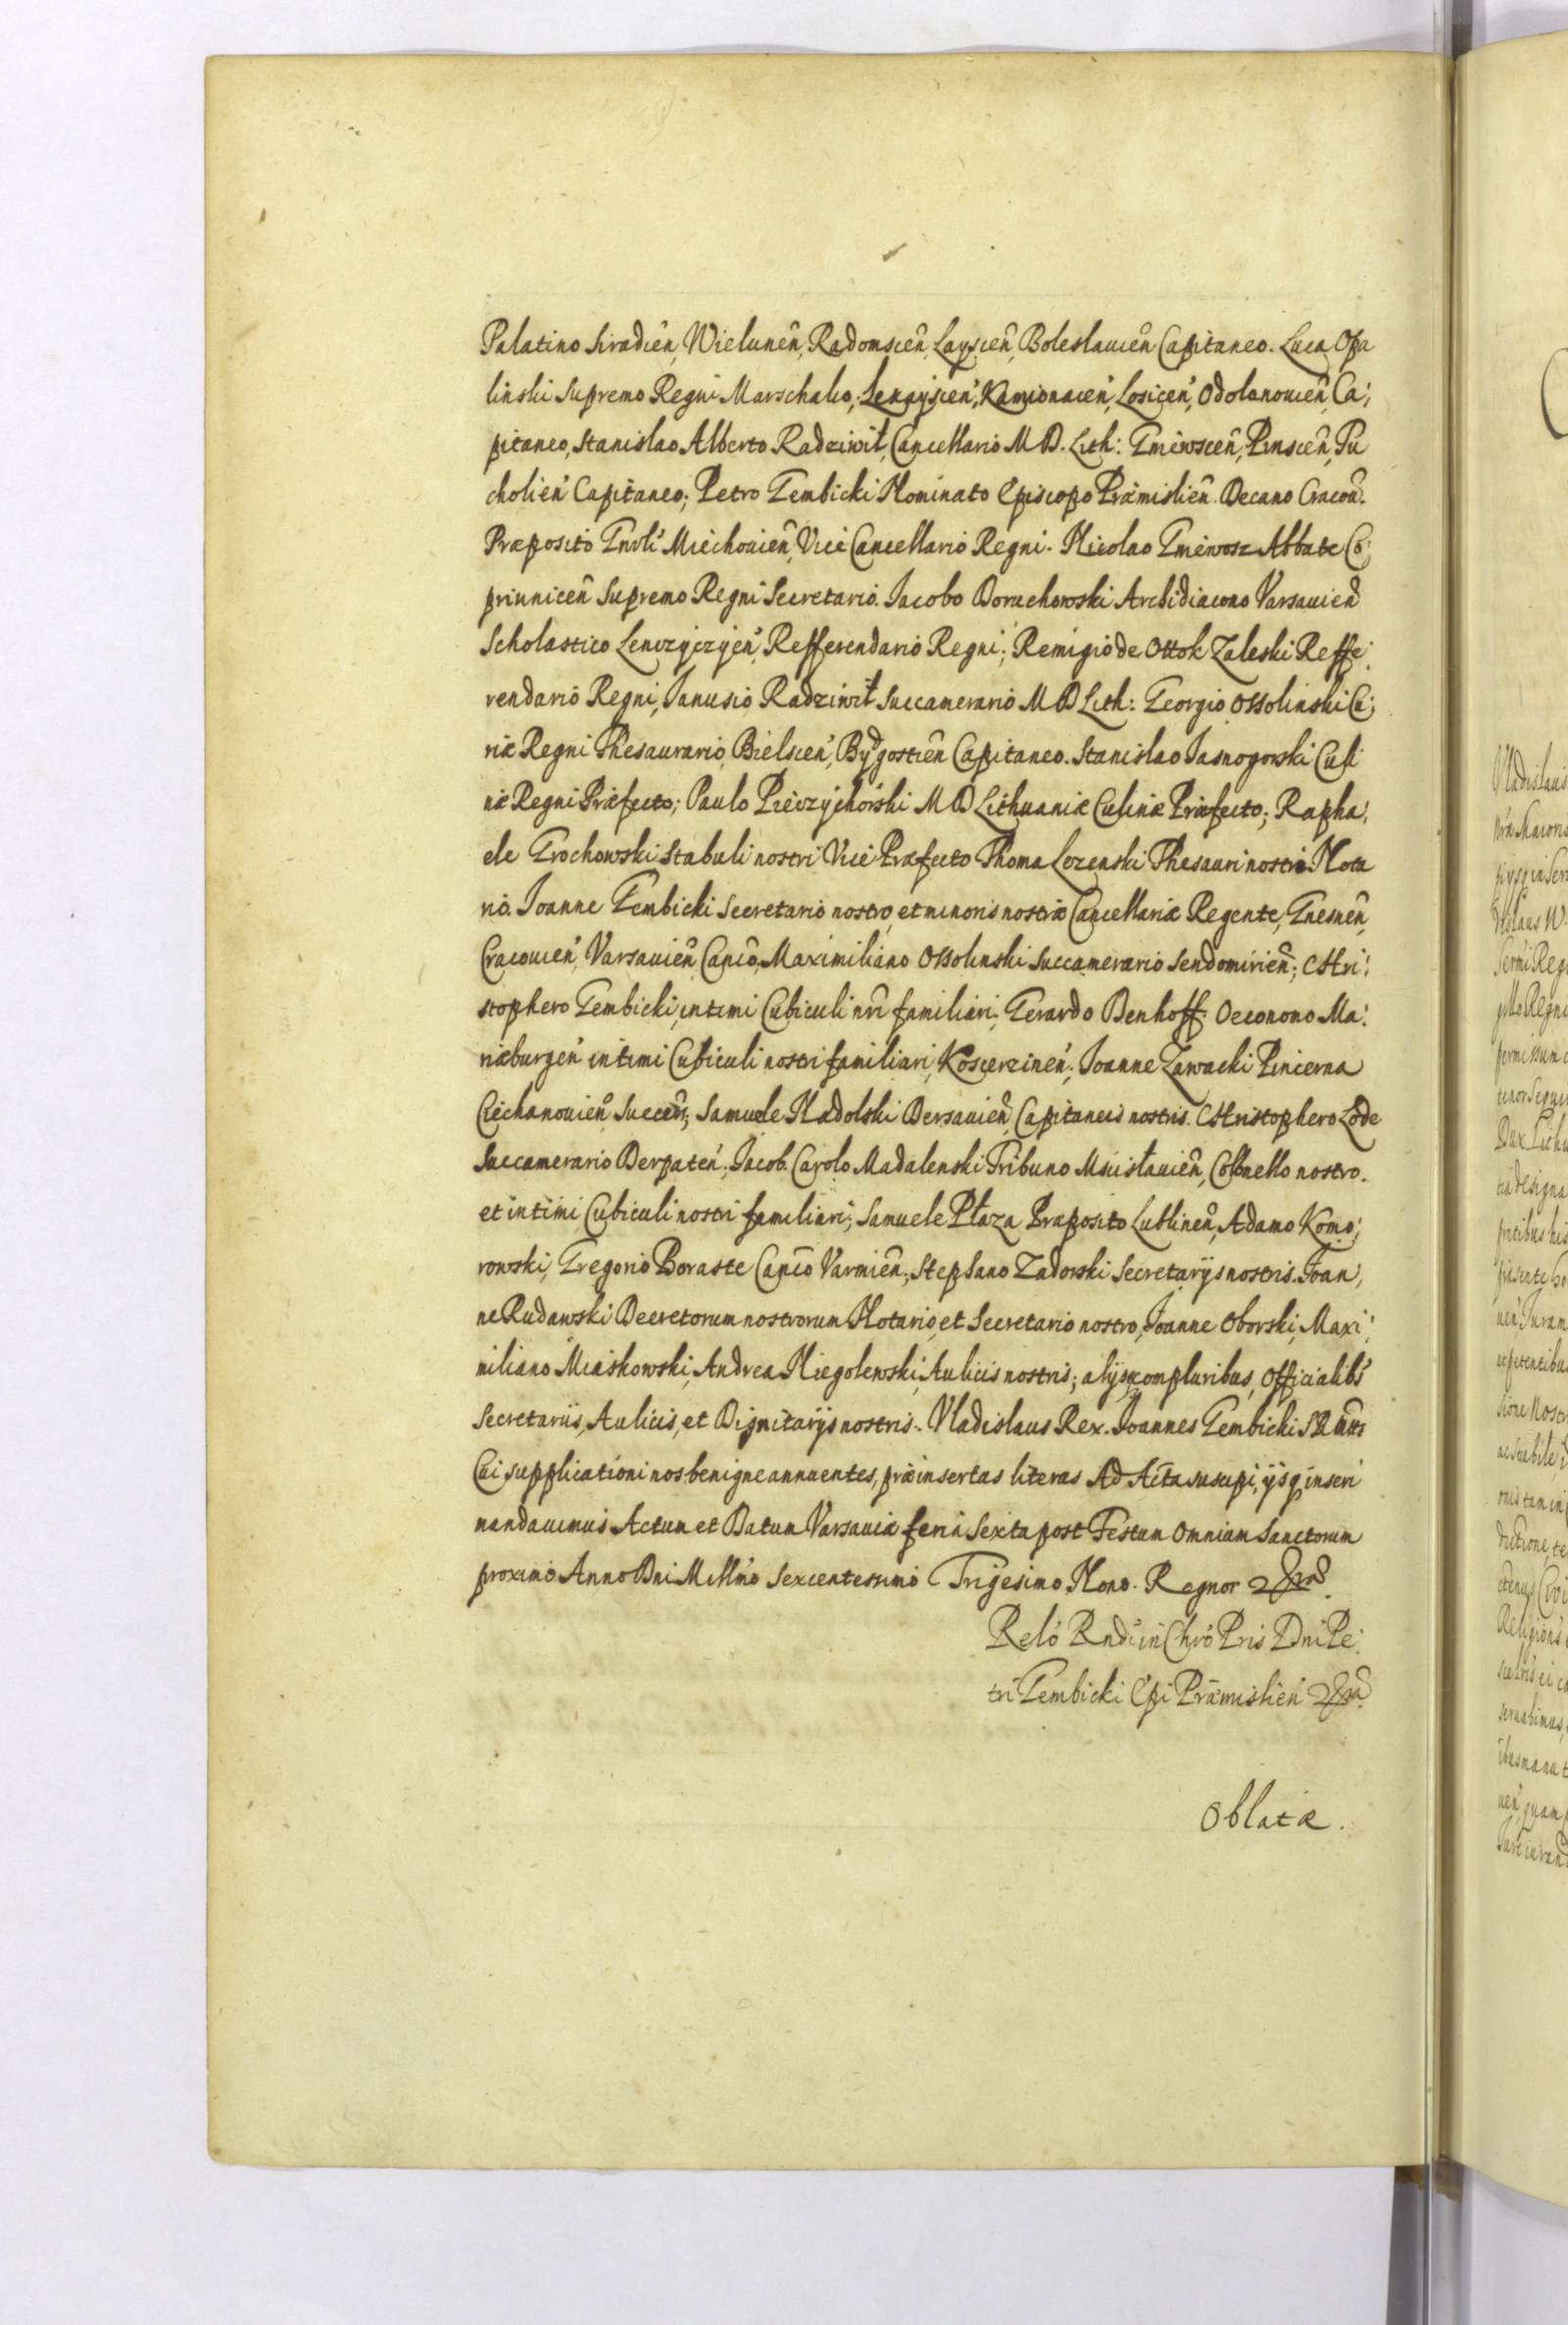 Palatino Siradien̄, Wielunen̄, Radomscen̄, Layscen̄, Boleslauien̄ Capitaneo. Luca Opa
linski Supremo Regni Marschalco, Lezayscen̄, Kamionacen̄, Losicen̄, Odolanouien̄, Ca;
pitaneo, Stanislao Alberto Radziwił, Cancellario M D. Lith: Gniewscen̄, Pinscen̄, Tu
cholien̄ Capitaneo; Petro Gembicki Nominato Episcopo Præmislien̄. Decano Cracou̅.
Præposito Gnrli Miechouien̄, Vice Cancellario Regni. Nicolao Gniewosz Abbate Co;
priunicen̄ Supremo Regni Secretario. Jacobo Boruchowski Archidiacono Varsauien̄
Scholastico Lenczyczyen̄, Refferendario Regni; Remigio de Ottok Zaleski Reffe;
rendario Regni, Janusio Radziwił Succamerario M D Lith: Georgio Ossolinski Cu;
riæ Regni Thesaurario, Bielscen̄, Bydgostien̄ Capitaneo. Stanislao Jasnogorski Culi
næ Regni Præfecto; Paulo Pieczychorski M D Lithuaniæ Culinæ Præfecto; Rapha;
ele Grochowski Stabuli nostri Vice Præfecto Thoma Lozenski Thesauri nostri Nota
rio. Joanne Gembicki Secretario nostro, et minoris nostræ Cancellariæ Regente, Gnesnen̄,
Cracouien̄, Varsauien̄ Canco̅, Maximiliano Ossolinski Succamerario Sendomirien̄; Chri;
stophero Gembicki, intimi Cubiculi nri̅ familiari; Gerardo Denhoff Oeconomo Ma;
riæburgen̄ intimi Cubiculi nostri familiari, Koscierzinen̄; Joanne Zawacki Pincerna
Ciechanouien̄ Succen̄; Samuele Nadolski Bersauien̄ Capitaneis nostris. Christophero Zode
Succamerario Derpaten̄; Jacob. Carolo Madalenski Tribuno Mscisłauien̄, Collonello nostro.
et intimi Cubiculi nostri familiari; Samuele Płaza Præposito Lublinen̄, Adamo Komo;
rowski, Gregorio Boraste Canco̅ Varmien̄; Stephano Zadorski Secretarijs nostris. Joan;
ne Rudawski Decretorum nostrorum Notario, et Secretario nostro, Joanne Oborski, Maxi;
miliano Miaskowski, Andrea Niegolewski, Aulicis nostris; alijsq compluribus, Officialib9
Secretariis, Aulicis, et Dignitarijs nostris. Vladislaus Rex. Joannes Gembicki S R Mtis
Cui supplicationi nos benigne annuentes, præinsertas literas Ad Acta suscipi, ijsq inseri
mandauimus Actum et Datum Varsauiæ feria Sexta post Festum Omnium Sanctorum
proximo Anno Dni Millmo Sexcentessimo Trigesimo Nono. Regnor
Relo Rndi in Chro Pris Dni Pe;
tri Gembicki Epi Præmislien̄
Oblatæ.